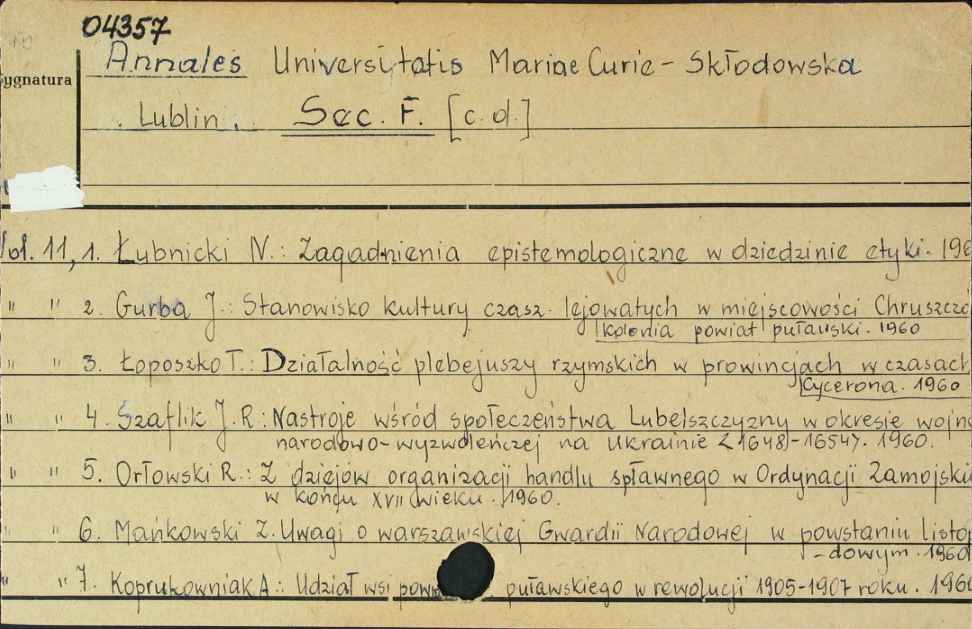 04357
Annales Universitatis Mariae Curie - Skłodowska
ygnatura
. Lublin . Sec. F. [c. d.]
Vol. 11, 1. Łubnicki N.: Zagadnienia epistemologiczne w dziedzinie etyki. 196
" " 2. Gurba J.: Stanowisko kultury czasz. lejowatych w miejscowości Chruszczó
Kolonia powiat puławski. 1960
" " 3. Łoposzko T.: Działalność plebejuszy rzymskich w prowincjach w czasach
Cycerona. 1960
" " 4. Szaflik J. R.: Nastroje wśród społeczeństwa Lubelszczyzny w okresie wojny
narodowo-wyzwoleńczej na Ukrainie <1648-1654>. 1960.
" " 5. Orłowski R.: Z dziejów organizacji handlu spławnego w Ordynacji Zamojski
w końcu XVII wieku. 1960.
" " 6. Mańkowski Z. Uwagi o warszawskiej Gwardii Narodowej w powstaniu listop
-dowym. 1960
" " 7. Koprukowniak A.: Udział wsi pow puławskiego w rewolucji 1905-1907 roku. 1960